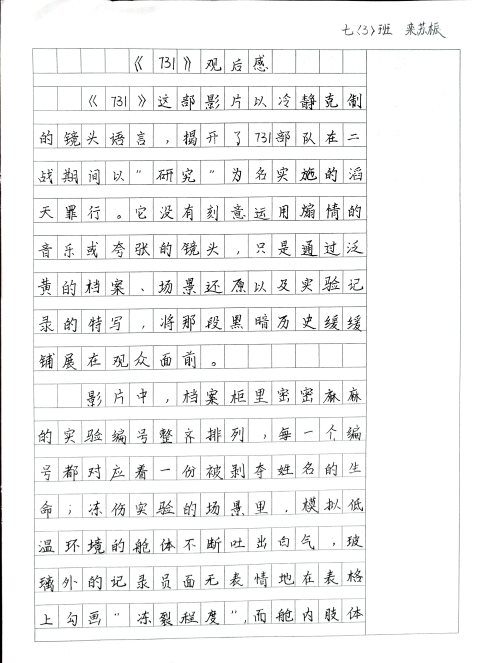 七(3)班 来苏桭
《731》观后感
《731》这部影片以冷静克制
的镜头语言，揭开了731部队在二
战期间以“研究”为名实施的滔
天罪行。它没有刻意运用煽情的
音乐或夸张的镜头，只是通过泛
黄的档案、场景还原以及实验记
录的特写，将那段黑暗历史缓缓
铺展在观众面前。
影片中，档案柜里密密麻麻
的实验编号整齐排列，每一个编
号都对应着一份被剥夺姓名的生
命；冻伤实验的场景里，模拟低
温环境的舱体不断吐出白气，玻
璃外的记录员面无表情地在表格
上勾画“冻裂程度”，而舱内肢体